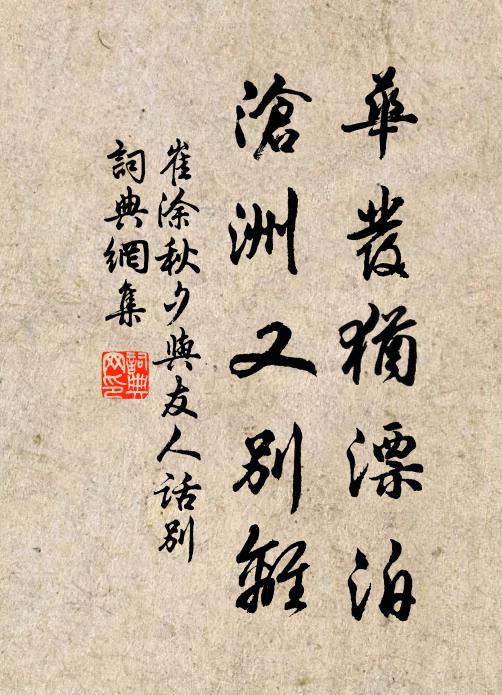 華發猶漂泊
滄洲又別離
崔涂秋夕與友人話別
詞典網集
詞典
网印